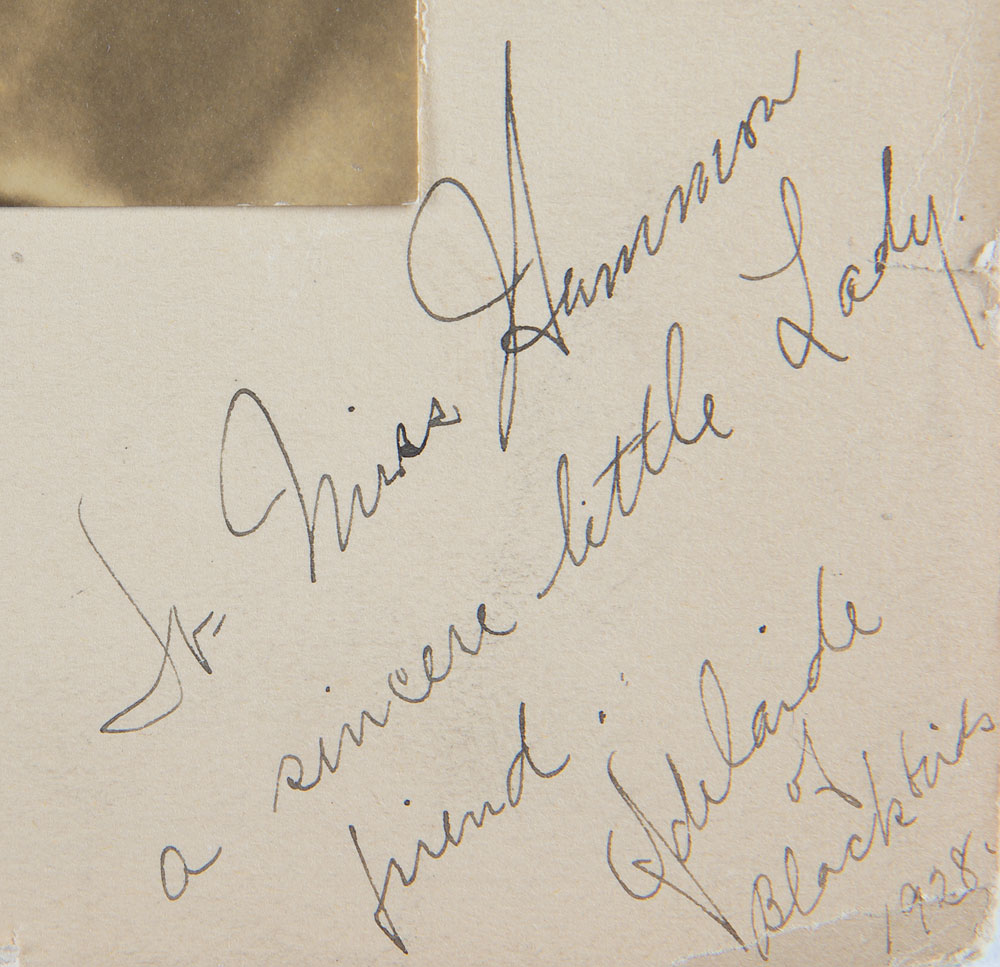 To Miss Hammon
a sincere little Lady.
friend.
Adelaide
of
Blackbirds
1928.